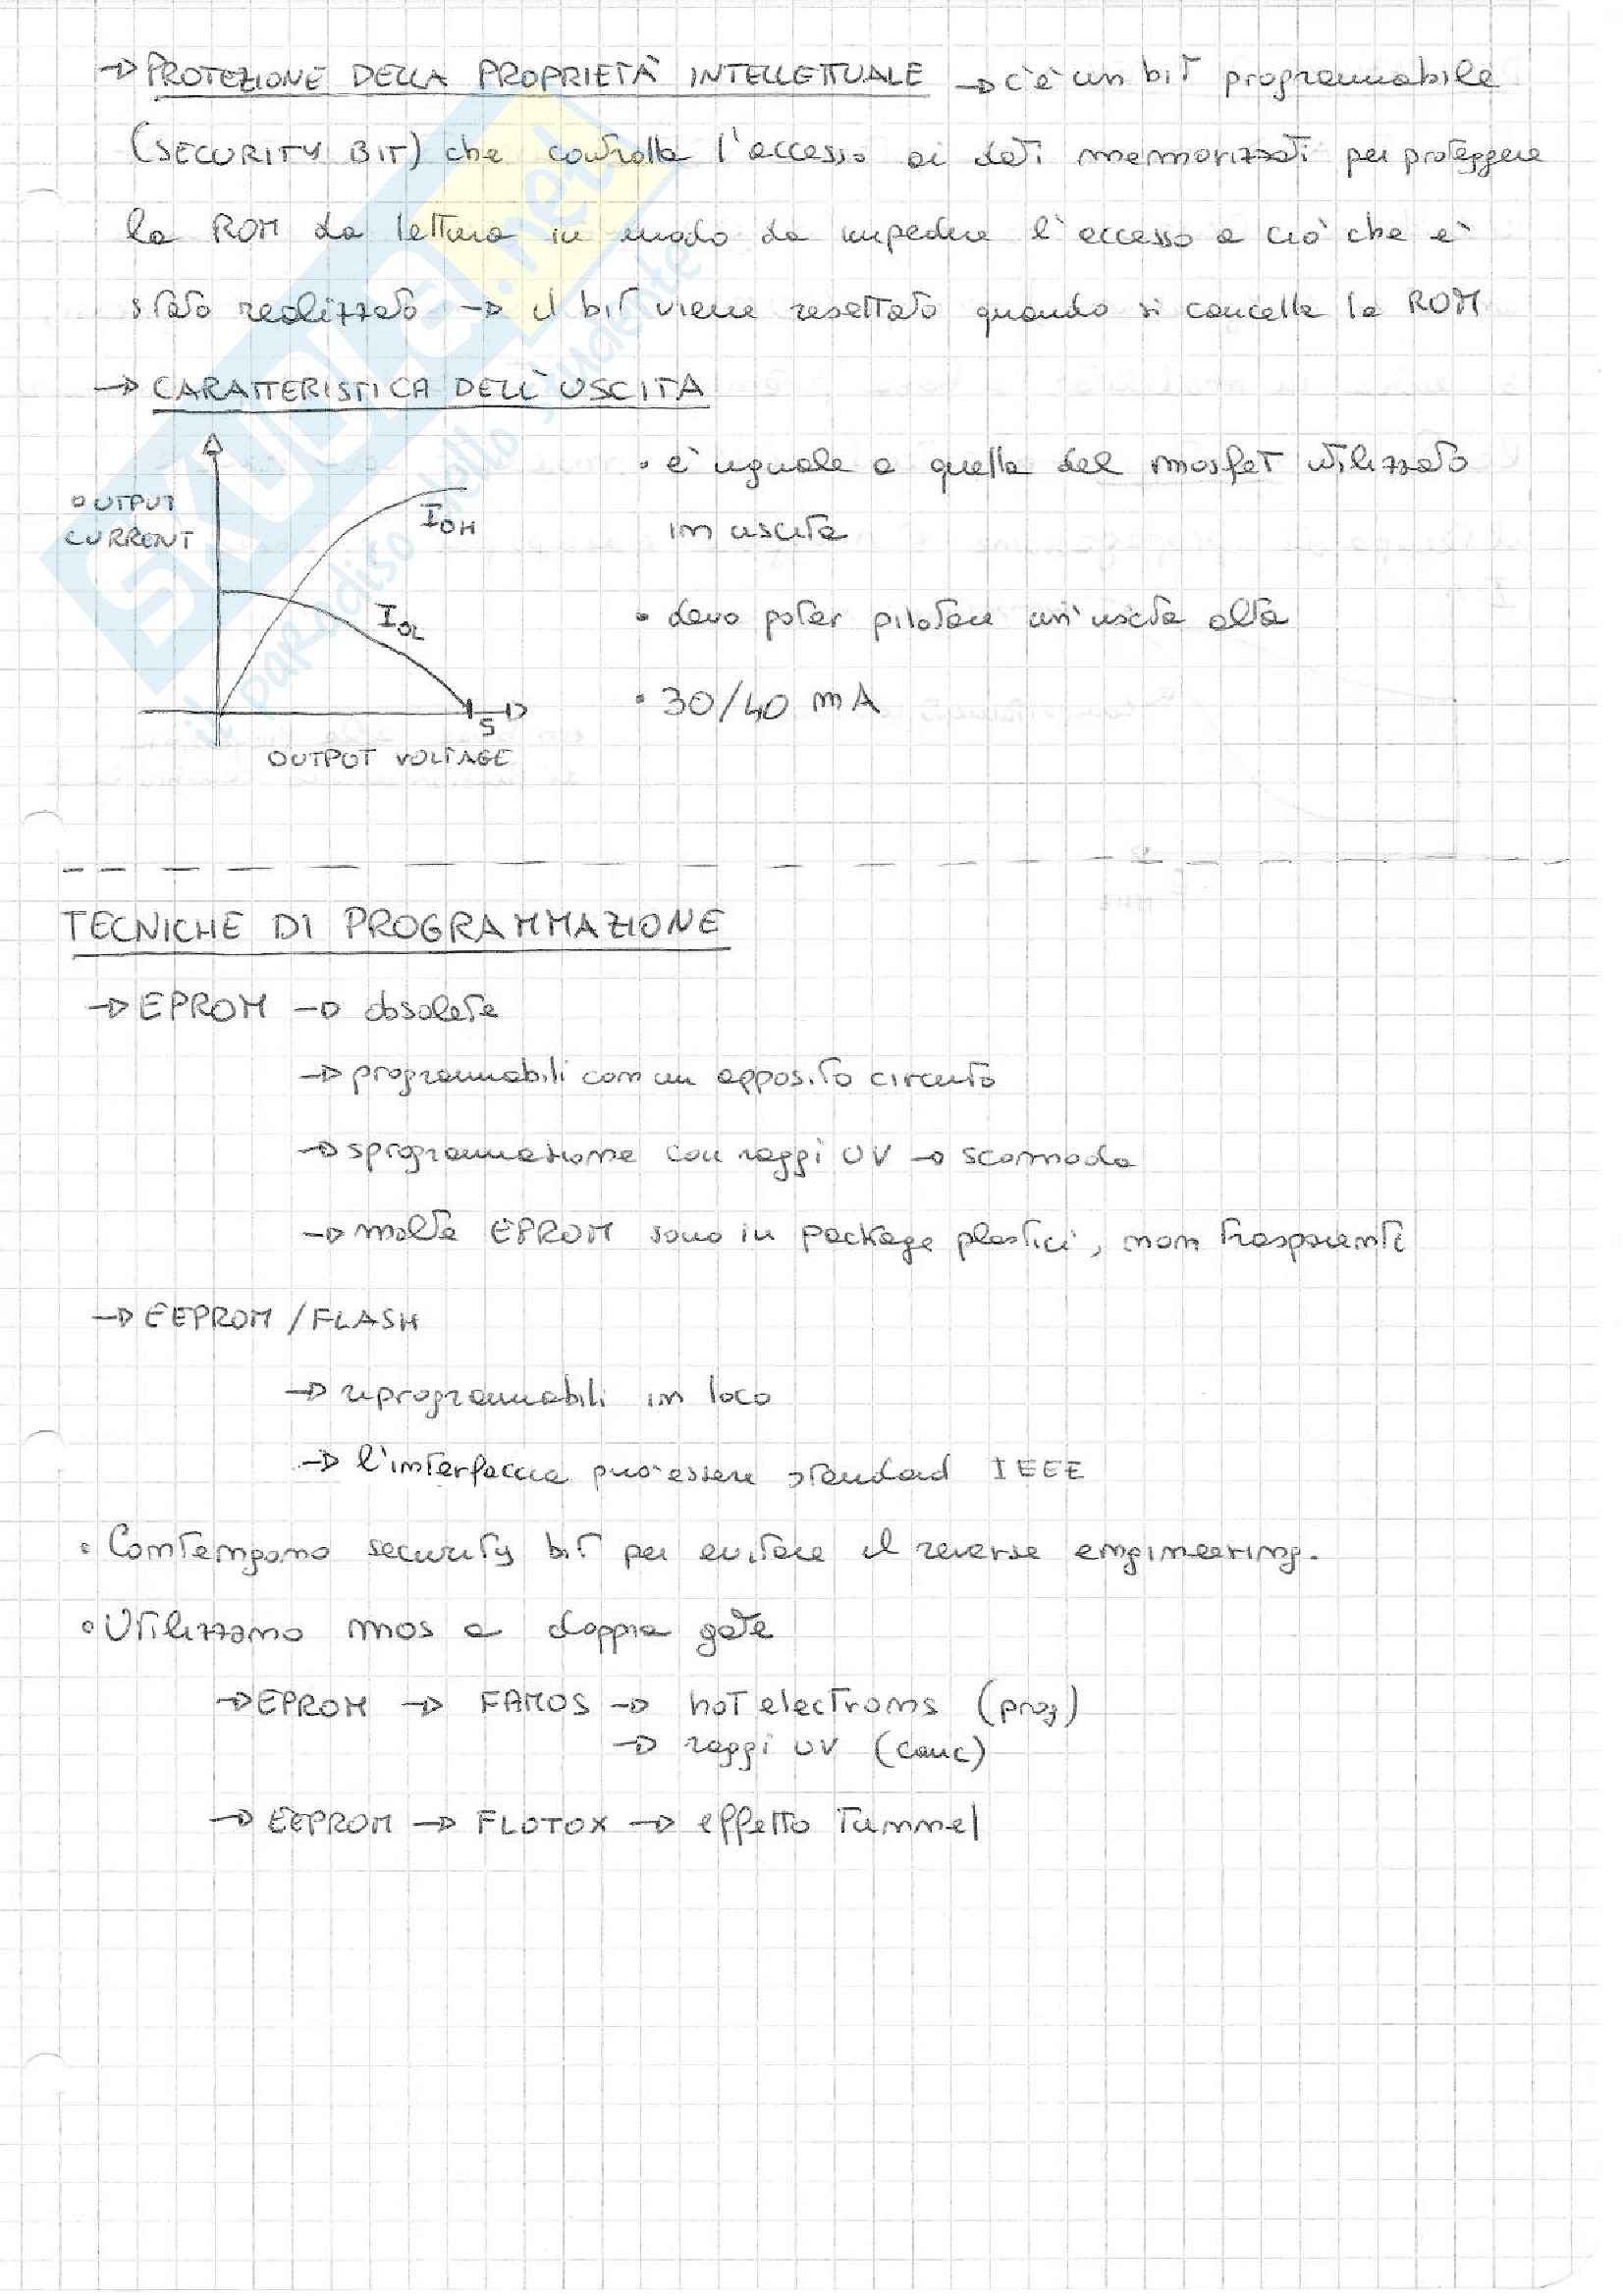 → PROTEZIONE DELLA PROPRIETÀ INTELLETTUALE → c'è un bit programmabile
(SECURITY BIT) che controlla l'accesso ai dati memorizzati per proteggere
la ROM da lettura in modo da impedire l'accesso a ciò che è
stato realizzato → il bit viene resettato quando si cancella la ROM
→ CARATTERISTICA DELL'USCITA
OUTPUT
CURRENT
IOH
IOL
5
OUTPUT VOLTAGE
• è uguale a quella del mosfet utilizzato
in uscita
• devo poter pilotare un'uscita alta
• 30/40 mA
TECNICHE DI PROGRAMMAZIONE
→ EPROM → obsolete
→ programmabili con un apposito circuito
→ sprogrammazione con raggi UV → scomoda
→ molte EPROM sono in package plastici, non trasparenti
→ EEPROM / FLASH
→ riprogrammabili in loco
→ l'interfaccia può essere standard IEEE
• Contengono security bit per evitare il reverse engineering.
• Utilizzano mos a doppia gate
→ EPROM → FAMOS → hot electrons (prog)
→ raggi UV (canc)
→ EEPROM → FLOTOX → effetto tunnel
SKUOLA.net
il paradiso dello studente